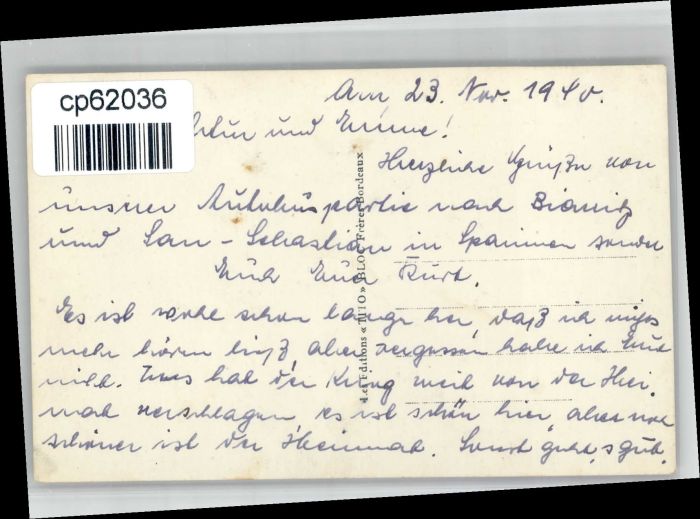 cp62036
Am 23. Nov. 1940.
und Emmi!
Herzliche Grüße von
unsrer Autobuspartie nach Biarritz
und San-Sebastian in Spanien sendet
Euch Euer Kurt.
Es ist wohl schon lange her, daß ich nichts
mehr hören ließ, aber vergessen habe ich Euch
nicht. Uns hat der Krieg weit von der Hei-
mat verschlagen, es ist schön hier, aber noch
schöner ist die Heimat. Sonst geht's gut.
d et Editions «TITO» BLOC Frères Bordeaux